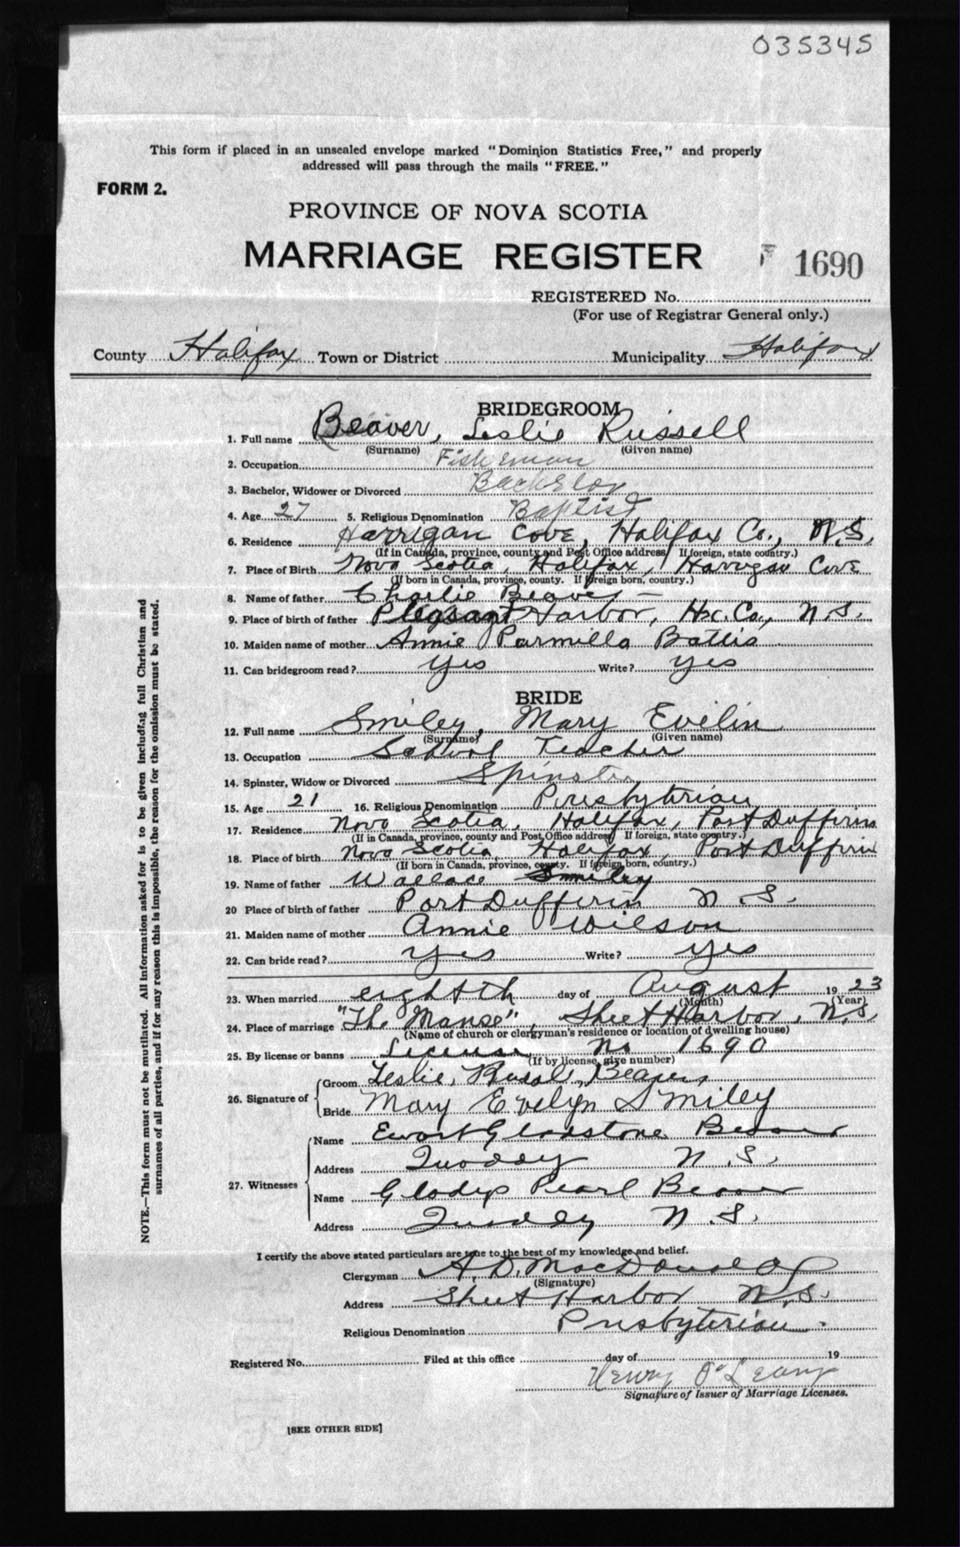 035345
This form if placed in an unsealed envelope marked "Dominion Statistics Free," and properly
addressed will pass through the mails "FREE."
FORM 2.
PROVINCE OF NOVA SCOTIA
MARRIAGE REGISTER 1690
REGISTERED No.
(For use of Registrar General only.)
County Halifax Town or District Municipality Halifax
BRIDEGROOM
1. Full name Beaver, Leslie Russell
(Surname) (Given name)
2. Occupation Fisherman
3. Bachelor, Widower or Divorced Bachelor
4. Age 27 5. Religious Denomination Baptist
6. Residence Harrigan Cove, Halifax Co., N.S.
(If in Canada, province, county and Post Office address. If foreign, state country.)
7. Place of Birth Nova Scotia, Halifax, Harrigan Cove
(If born in Canada, province, county. If foreign born, country.)
8. Name of father Charlie Beaver
9. Place of birth of father Pleasant Harbor, Hx. Co., N.S.
10. Maiden name of mother Annie Parmilla
11. Can bridegroom read? Yes Write? yes
BRIDE
12. Full name Smiley, Mary Evilin
(Surname) (Given name)
13. Occupation School Teacher
14. Spinster, Widow or Divorced Spinster
15. Age 21 16. Religious Denomination Presbyterian
17. Residence Nova Scotia, Halifax, Port Dufferin
(If in Canada, province, county and Post Office address. If foreign, state country.)
18. Place of birth Nova Scotia, Halifax, Port Dufferin
(If born in Canada, province, county. If foreign born, country.)
19. Name of father Wallace Smiley
20 Place of birth of father Port Dufferin N.S.
21. Maiden name of mother Annie Wilson
22. Can bride read? yes Write? yes
23. When married eighth day of August 19 23
(Month) (Year)
24. Place of marriage "The Manse", Sheet Harbor, N.S.
(Name of church or clergyman's residence or location of dwelling house)
25. By license or banns License No 1690
(If by license, give number)
26. Signature of Groom Leslie Beaver
Bride Mary Evelyn Smiley
27. Witnesses
Name Ewart Gladstone Beaver
Address Quoddy N.S.
Name Gladys Pearl Beaver
Address Quoddy N.S.
I certify the above stated particulars are true to the best of my knowledge and belief.
Clergyman A. D. MacDonald
(Signature)
Address Sheet Harbor N.S.
Religious Denomination Presbyterian.
Registered No. Filed at this office day of 19
Henry O'Leary
Signature of Issuer of Marriage Licenses.
[SEE OTHER SIDE]
NOTE.—This form must not be mutilated. All information asked for is to be given including full Christian and
surnames of all parties, and if for any reason this is impossible, the reason for the omission must be stated.